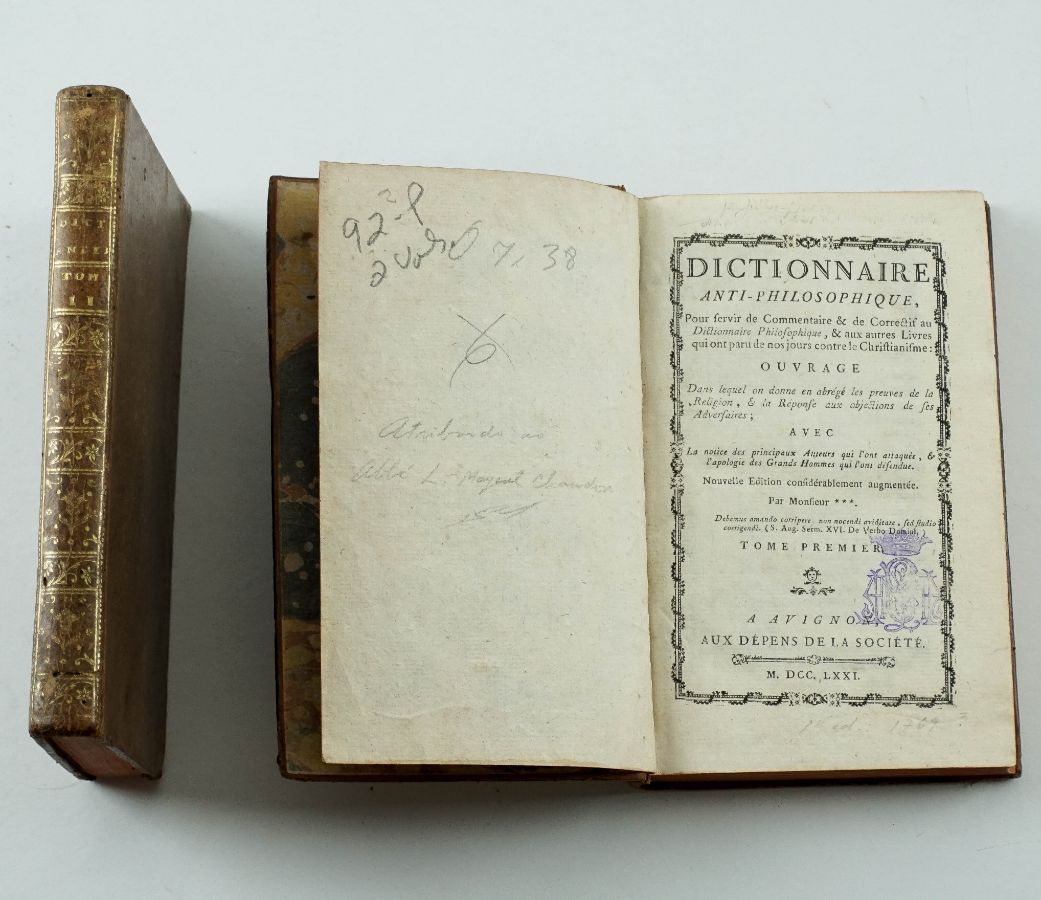 TOM
II
92
2 vols
7, 38
Atribuido ao
Abbé L. Mayeul Chaudon
DICTIONNAIRE
ANTI-PHILOSOPHIQUE,
Pour ſervir de Commentaire & de Correctif au
Dictionnaire Philoſophique, & aux autres Livres
qui ont paru de nos jours contre le Chriſtianiſme:
OUVRAGE
Dans lequel on donne en abrégé les preuves de la
Religion, & la Réponſe aux objections de ſes
Adverſaires;
AVEC
La notice des principaux Auteurs qui l'ont attaquée, &
l'apologie des Grands Hommes qui l'ont défendue.
Nouvelle Edition conſidérablement augmentée.
Par Monſieur ***.
Debemus amando corripere, non nocendi aviditate, ſed ſtudio
corrigendi. (S. Aug. Serm. XVI. De Verbo Domini.)
TOME PREMIER
A AVIGNON,
AUX DÉPENS DE LA SOCIÉTÉ.
M. DCC. LXXI.
1ª ed. 1767